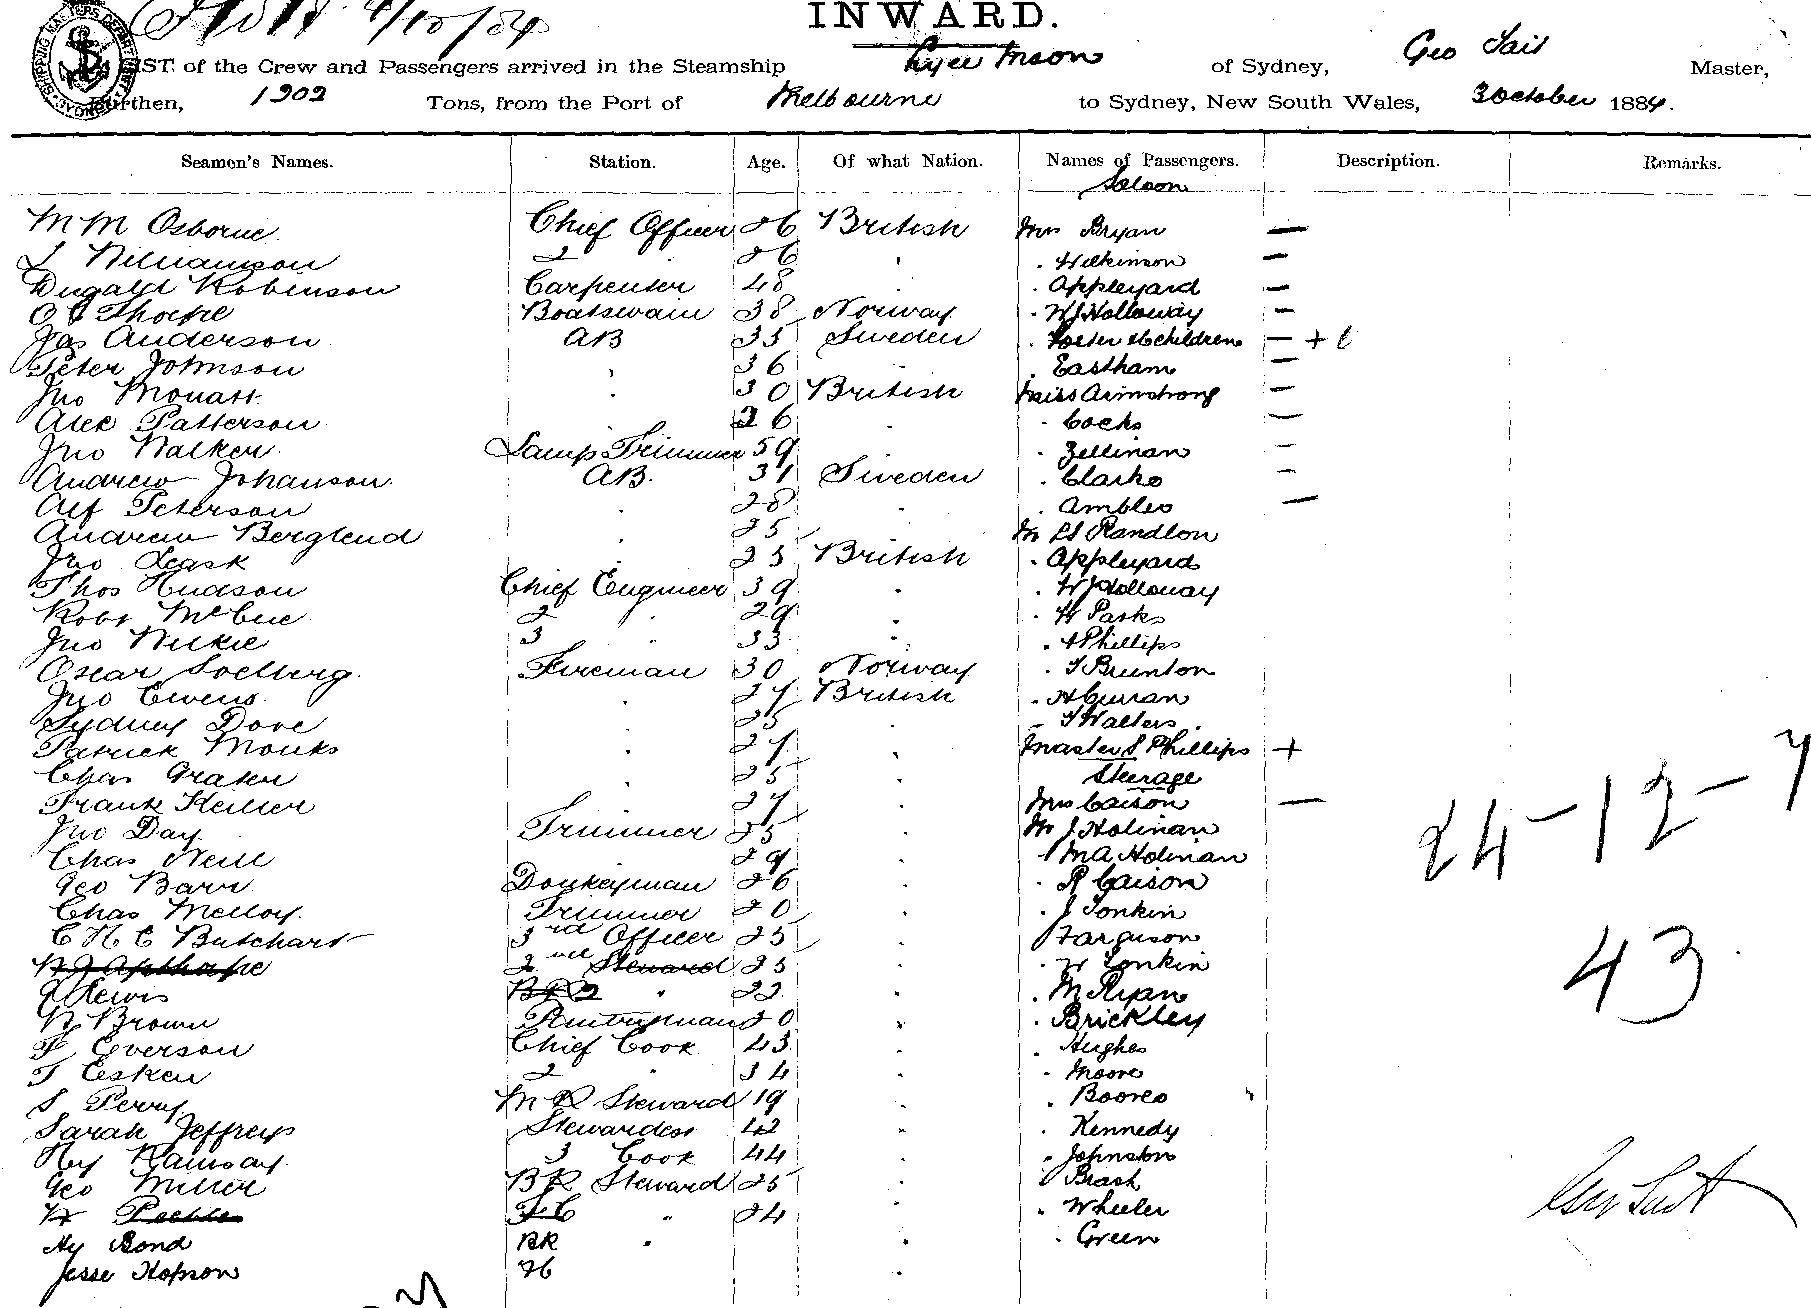 INWARD.
LIST of the Crew and Passengers arrived in the Steamship Gyee Moon of Sydney, Geo Tait Master,
Burthen, 1202 Tons, from the Port of Melbourne to Sydney, New South Wales, 3 October 1884.
Seamen's Names. Station. Age. Of what Nation. Names of Passengers. Description. Remarks.
Saloon
M M Osborne Chief Officer 26 British Mrs Bryan —
Williamson 2 26 . . Wilkinson —
Dugald Robinson Carpenter 48 . Appleyard —
Thorpe Boatswain 38 Norway . W J Holloway —
Jas Anderson AB 35 Sweden . children — + 6
Peter Johnson . 36 . Eastham —
Jno Mouatt . 30 British Miss Armstrong —
Alex Patterson 26 . Cocks —
Jno Walker Lamp Trimmer 59 . Zellman —
Andrew Johanson AB. 31 Sweden . Clarke —
Alf Peterson . 28 . . Ambler —
Andrew Berglund . 25 Mr Randlon
Jno Leask 25 British . Appleyard
Thos Hudson Chief Engineer 39 . . W J Holloway
Robt McCue 2 . 29 . . H Parks
Jno Wilkie 3 . 33 . . Phillips
Oscar Soelberg Fireman 30 Norway . T Brunton
Jno Ewens . 27 British . H Curran
Sydney Dove . 25 . T Walters
Patrick Monks . 27 . Master S Phillips +
Chas . 25 . Steerage
Frank 27 . Mrs Caison —
Jno Day Trimmer 25 . Mr J Holman
Chas Neill 29 . M A Holman
Geo Barr Donkeyman 26 . . R Caison
Chas Melloy Trimmer 20 . . J Tonkin
C H C Butchart 3rd Officer 25 . Farguson
W J Apthorpe 2nd Steward 25 . . W Tonkin
Lewis B R 2 . 22 . . M Ryan
W Brown Pantryman 20 . . Brickley
F Everson Chief Cook 43 . . Hughes
T Esken 2 . 34 . . Moore
S Perry M R Steward 19 . . Booreo
Sarah Jeffreys Stewardess 42 . . Kennedy
Hy Ramsay 3 Cook 44 . . Johnston
Geo Miller B R Steward 25 . Brash
F C . 24 . . Wheeler
Hy Bond BR . . . Green
Jesse Hopson
24 - 12 - 7
43